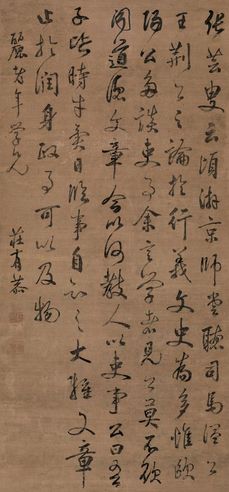 張芸叟云頃游京師嘗聽司馬溫公
王荊公之論於行義文史為多惟歐
陽公多談吏事余言學者見公莫不欲
聞道德文章今以何教人以吏事公曰吾
子皆時才異日臨事自知之大文章
止於潤身政事可以及物
年學兄
莊有恭